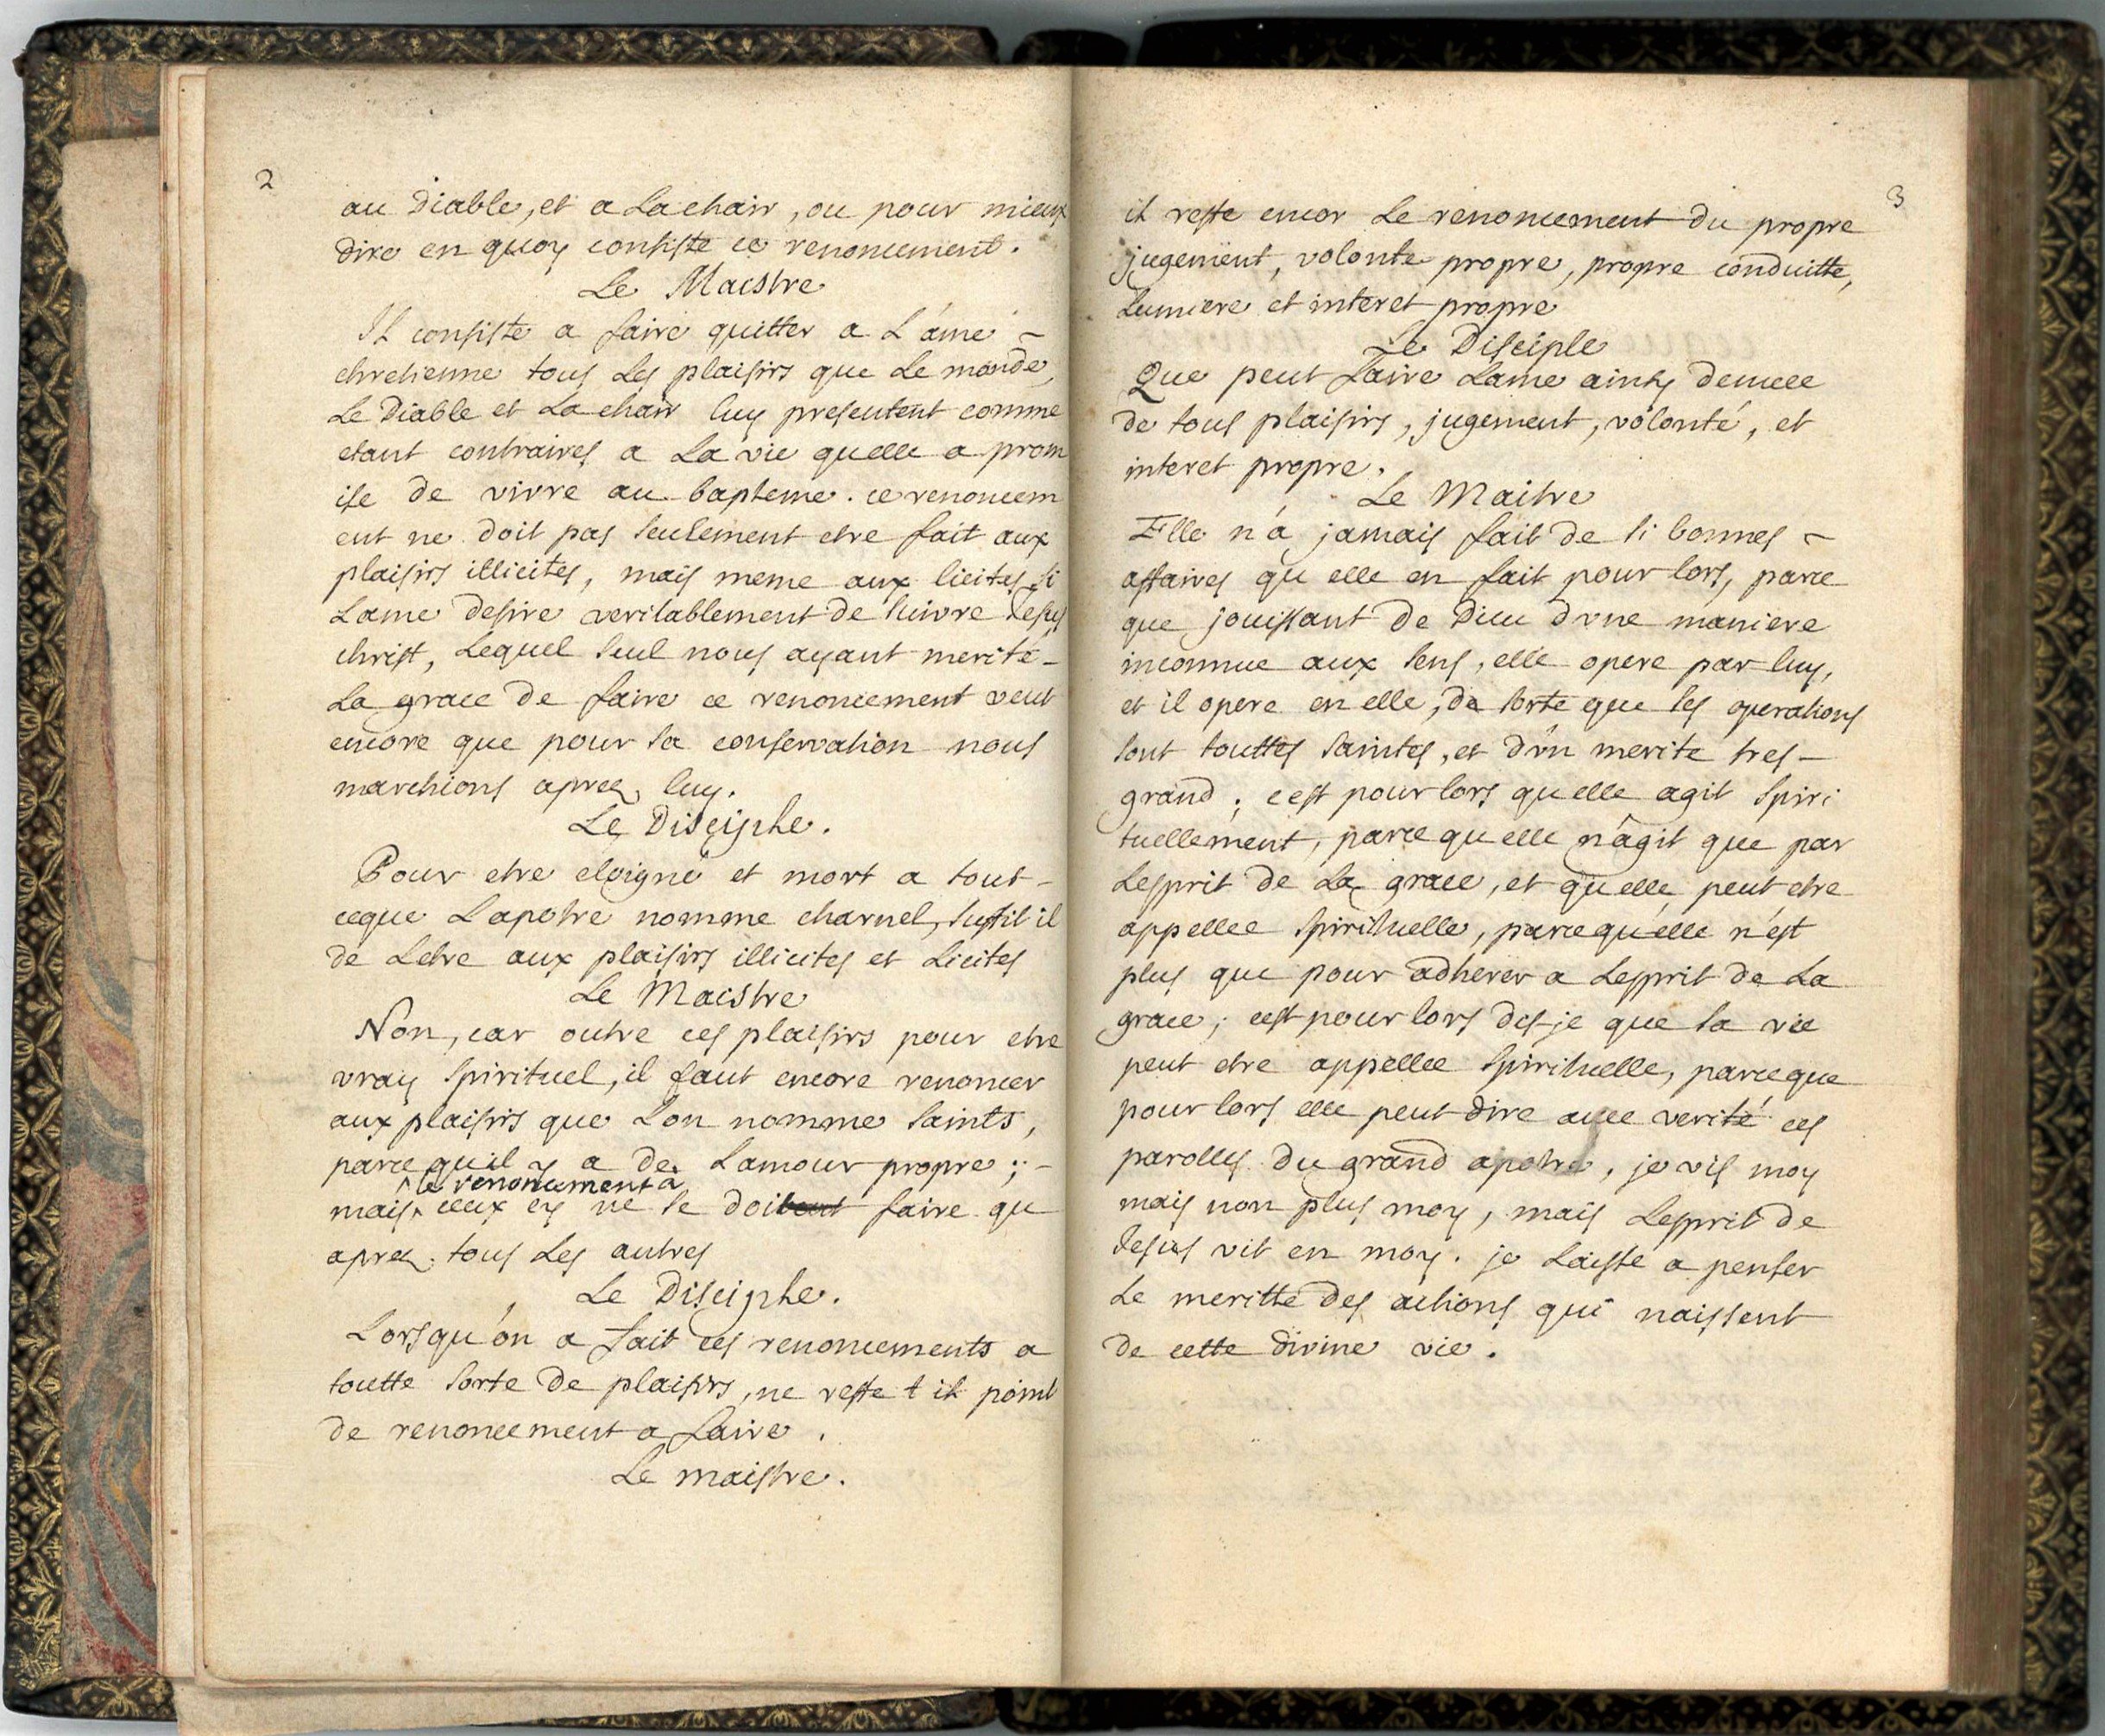 2
au Diable, et a La chair, ou pour mieux
dire en quoy consiste ce renoncement.
Le Maistre
Il consiste a faire quitter a L'ame
chretienne tous Les plaisirs que Le monde,
Le Diable et La chair luy presentent comme
etant contraires a La vie quelle a prom
ise de vivre au bapteme. ce renoncem
ent ne doit pas seulement etre fait aux
plaisirs illicites, mais meme aux licites, si
Lame desire veritablement de suivre Jesus
christ, Lequel seul nous ayant merité
La grace de faire ce renoncement veut
encore que pour sa conservation nous
marchions aprez luy.
Le Disciple.
Pour etre eloigné et mort a tout
ceque Lapotre nomme charnel, suffit il
de Letre aux plaisirs illicites et Licites
Le Maistre
Non, car outre ces plaisirs pour etre
vray spirituel, il faut encore renoncer
aux plaisirs que Lon nomme saints,
parce quil y a de Lamour propre; -
le renoncement a
mais ceux cy ne se doibvent faire qu
aprez tous Les autres
Le Disciple.
Lorsqu'on a fait ces renoncements a
toutte sorte de plaisirs, ne reste t il point
de renoncement a faire.
Le maistre.
3
il reste encor Le renoncement du propre
jugement, volonte propre, propre conduitte,
Lumiere et interet propre
Le Disciple
Que peut faire Lame ainsy denuee
de tous plaisirs, jugement, volonté, et
interet propre.
Le Maitre
Elle n'a jamais fait de si bonnes
affaires qu elle en fait pour lors, parce
que jouissant de Dieu d'vne maniere
inconnue aux sens, elle opere par luy,
et il opere en elle, de sorte que ses operations
sont touttes saintes, et d'vn merite tres -
grand; cest pour lors qu elle agit spiri
tuellement, parce qu elle n'agit que par
Lesprit de La grace, et qu elle peut etre
appellee spirituelle, parce qu'elle n'est
plus que pour adherer a Lesprit de La
grace; cest pour lors dis-je que sa vie
peut etre appellee spirituelle, parceque
pour lors elle peut dire avec verité ces
parolles du grand apotre, je vis moy
mais non plus moy, mais Lesprit de
Jesus vit en moy. je Laisse a penser
Le meritte des actions qui naissent
de cette divine vie.